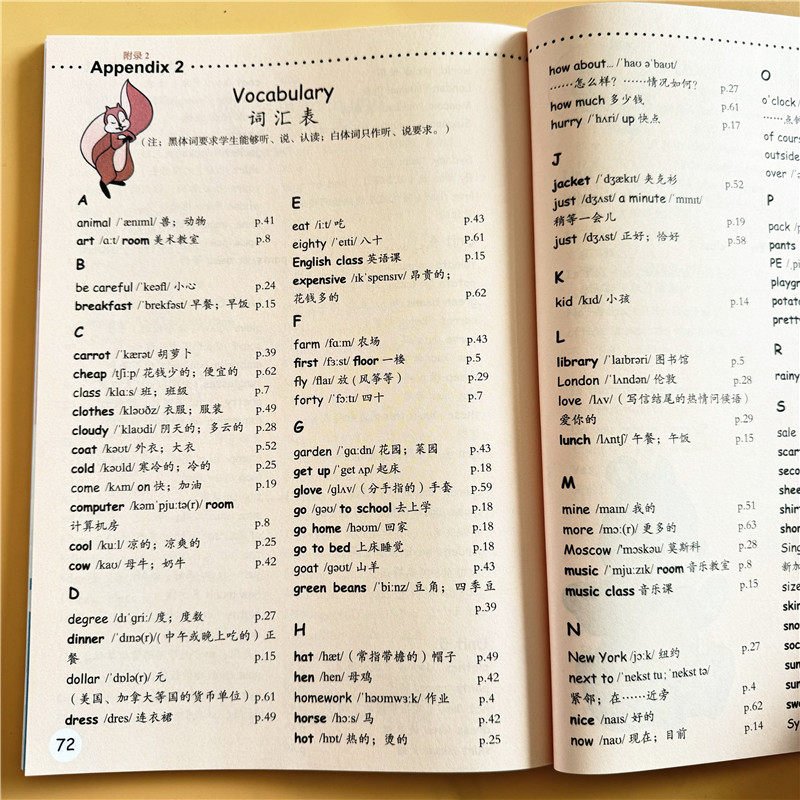 附录 2
Appendix 2
Vocabulary
词汇表
(注：黑体词要求学生能够听、说、认读；白体词只作听、说要求。)
A
animal /ˈænɪml/ 兽；动物 p.41
art /ɑːt/ room 美术教室 p.8
B
be careful /ˈkeəfl/ 小心 p.24
breakfast /ˈbrekfəst/ 早餐；早饭 p.15
C
carrot /ˈkærət/ 胡萝卜 p.39
cheap /tʃiːp/ 花钱少的；便宜的 p.62
class /klɑːs/ 班；班级 p.7
clothes /kləʊðz/ 衣服；服装 p.49
cloudy /ˈklaʊdi/ 阴天的；多云的 p.28
coat /kəʊt/ 外衣；大衣 p.52
cold /kəʊld/ 寒冷的；冷的 p.25
come /kʌm/ on 快；加油 p.19
computer /kəmˈpjuːtə(r)/ room
计算机房 p.8
cool /kuːl/ 凉的；凉爽的 p.25
cow /kaʊ/ 母牛；奶牛 p.42
D
degree /dɪˈɡriː/ 度；度数 p.27
dinner /ˈdɪnə(r)/(中午或晚上吃的）正
餐 p.15
dollar /ˈdɒlə(r)/ 元
（美国、加拿大等国的货币单位）p.61
dress /dres/ 连衣裙 p.49
72
E
eat /iːt/ 吃 p.43
eighty /ˈeɪti/ 八十 p.61
English class 英语课 p.15
expensive /ɪkˈspensɪv/ 昂贵的；
花钱多的 p.62
F
farm /fɑːm/ 农场 p.43
first /fɜːst/ floor 一楼 p.5
fly /flaɪ/ 放（风筝等） p.29
forty /ˈfɔːti/ 四十 p.7
G
garden /ˈɡɑːdn/ 花园；菜园 p.43
get up /ˈɡet ʌp/ 起床 p.18
glove /ɡlʌv/（分手指的）手套 p.59
go /ɡəʊ/ to school 去上学 p.18
go home /həʊm/ 回家 p.18
go to bed 上床睡觉 p.18
goat /ɡəʊt/ 山羊 p.43
green beans /ˈbiːnz/ 豆角；四季豆
p.39
H
hat /hæt/（常指带檐的）帽子 p.49
hen /hen/ 母鸡 p.42
homework /ˈhəʊmwɜːk/ 作业 p.4
horse /hɔːs/ 马 p.42
hot /hɒt/ 热的；烫的 p.25
how about… /ˈhaʊ əˈbaʊt/
……怎么样？……情况如何？ p.27
how much 多少钱 p.61
hurry /ˈhʌri/ up 快点 p.17
J
jacket /ˈdʒækɪt/ 夹克衫 p.52
just /dʒʌst/ a minute /ˈmɪnɪt/
稍等一会儿 p.19
just /dʒʌst/ 正好；恰好 p.58
K
kid /kɪd/ 小孩 p.14
L
library /ˈlaɪbrəri/ 图书馆 p.5
London /ˈlʌndən/ 伦敦 p.28
love /lʌv/（写信结尾的热情问候语）
爱你的 p.29
lunch /lʌntʃ/ 午餐；午饭 p.15
M
mine /maɪn/ 我的 p.51
more /mɔː(r)/ 更多的 p.63
Moscow /ˈmɒskəʊ/ 莫斯科 p.28
music /ˈmjuːzɪk/ room 音乐教室 p.8
music class 音乐课 p.15
N
New York /jɔːk/ 纽约 p.27
next to /ˈnekst tu; ˈnekst tə/
紧邻；在……近旁 p.4
nice /naɪs/ 好的 p.62
now /naʊ/ 现在；目前 p.14
O
o'clock
……点
of cours
outside
over
P
pack
pants
PE
playgr
potato
prett
R
rainy
S
sale
scar
seco
shee
shir
shor
Sing
新加
size
skir
sno
so
sun
sun
swe
Sy